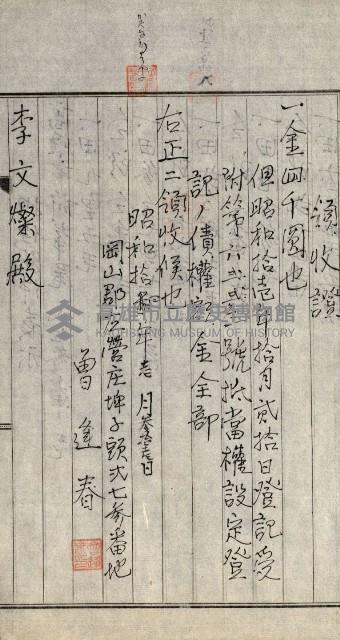 領收證
一金四千圓也
但昭和拾壱年拾月貳拾日登記受
附第六弐弐號抵當權設定登
記ノ債權額金全部
右正ニ領收候也
昭和拾年壱月參拾壱日
岡山郡左營庄埤子頭弐七參番地
曾逢春
李文燦殿
高雄市立歷史博物館
MUSEUM OF HISTORY